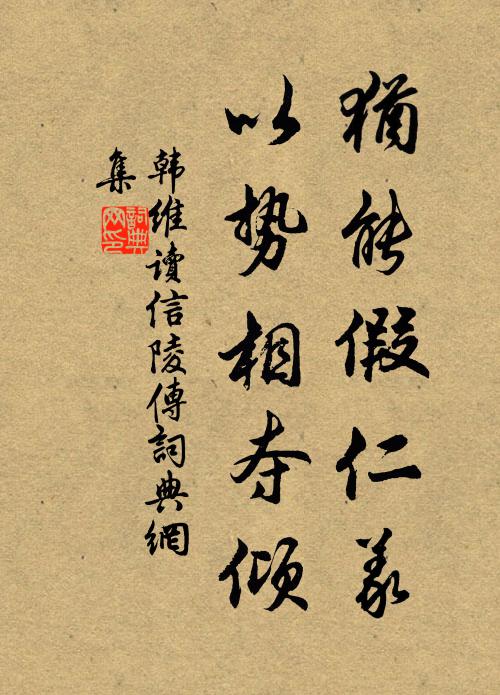 猶能假仁義
以勢相夺傾
韩维讀信陵傳詞典網
集
詞典
网印